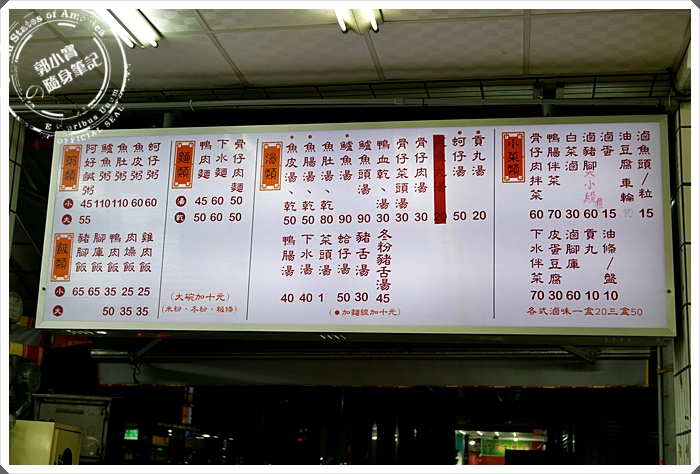 郭小寶
隨身筆記
OFFICIAL SEAL
粥類
阿好鹹粥
魚肉粥
魚肚粥
魚皮粥
蚵仔粥
小 45 110 110 60 60
大 55
飯類
豬腳飯
腳庫飯
鴨肉飯
肉燥飯
雞肉飯
小 65 65 35 25 25
大 50 35 35
麵類
鴨肉麵
下水麵
骨仔肉麵
湯 45 60 50
乾 50 60 50
(大碗加十元)
(米粉、冬粉、粄條)
湯類
魚皮湯、乾 50
魚腸湯、乾 50
魚肚湯 80
鱸魚湯 90
虱頭湯 90
鴨血湯、乾 30
骨仔菜頭湯 30
骨仔肉湯 30
丸湯 20
蚵仔湯 50
貢丸湯 20
鴨腸湯 40
下水湯 40
菜頭湯 1
蛤仔湯 50
豬舌湯 30
冬粉豬舌湯 45
(●加麵線加十元)
小菜類
骨仔肉拌菜 60
鴨腸拌菜 70
白菜滷 30
滷豬腳 大小段 60
滷蛋 15
油豆腐 車輪 10
滷魚頭/粒 15
下水拌菜 70
皮蛋豆腐 30
滷腳庫 60
貢丸 10
油條/盤 10
各式滷味一盒20三盒50